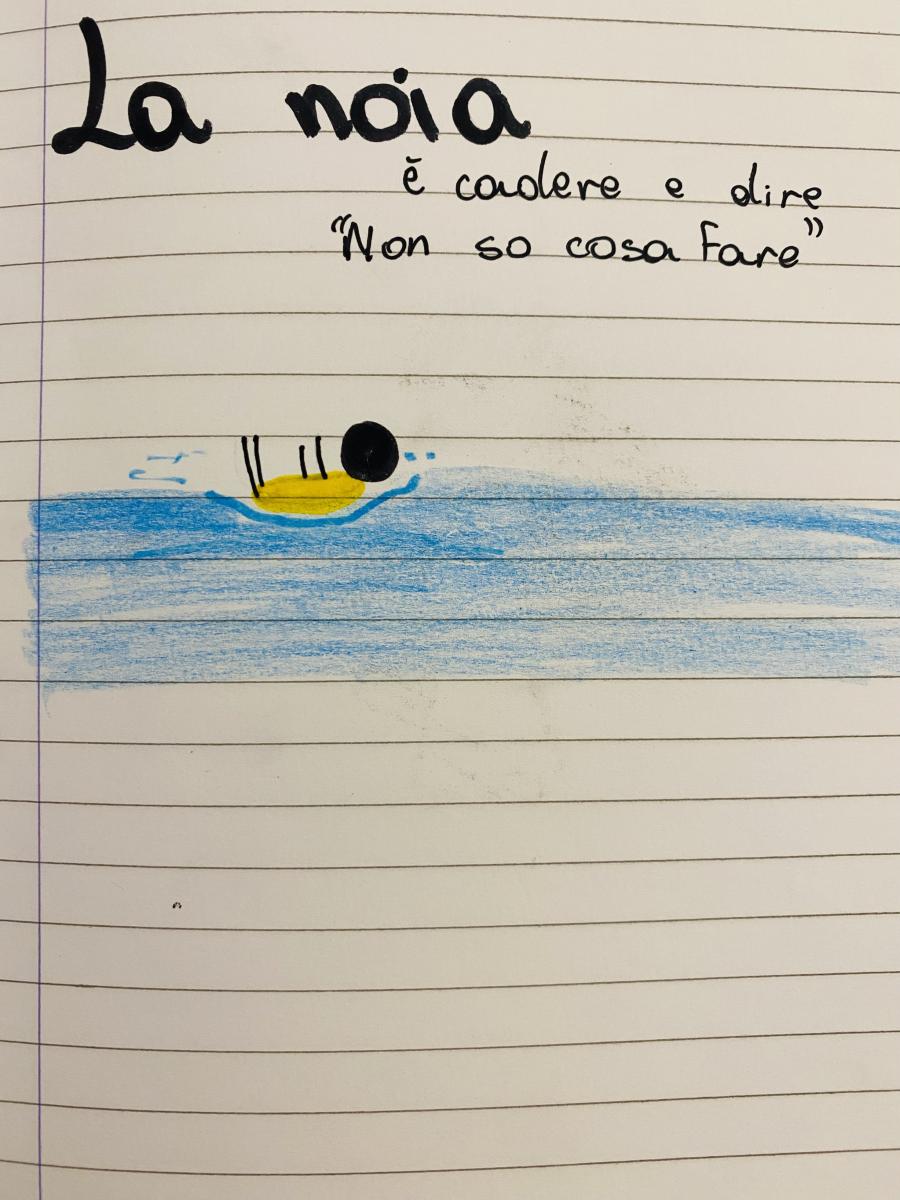 La noia
è cadere e dire
"Non so cosa fare"